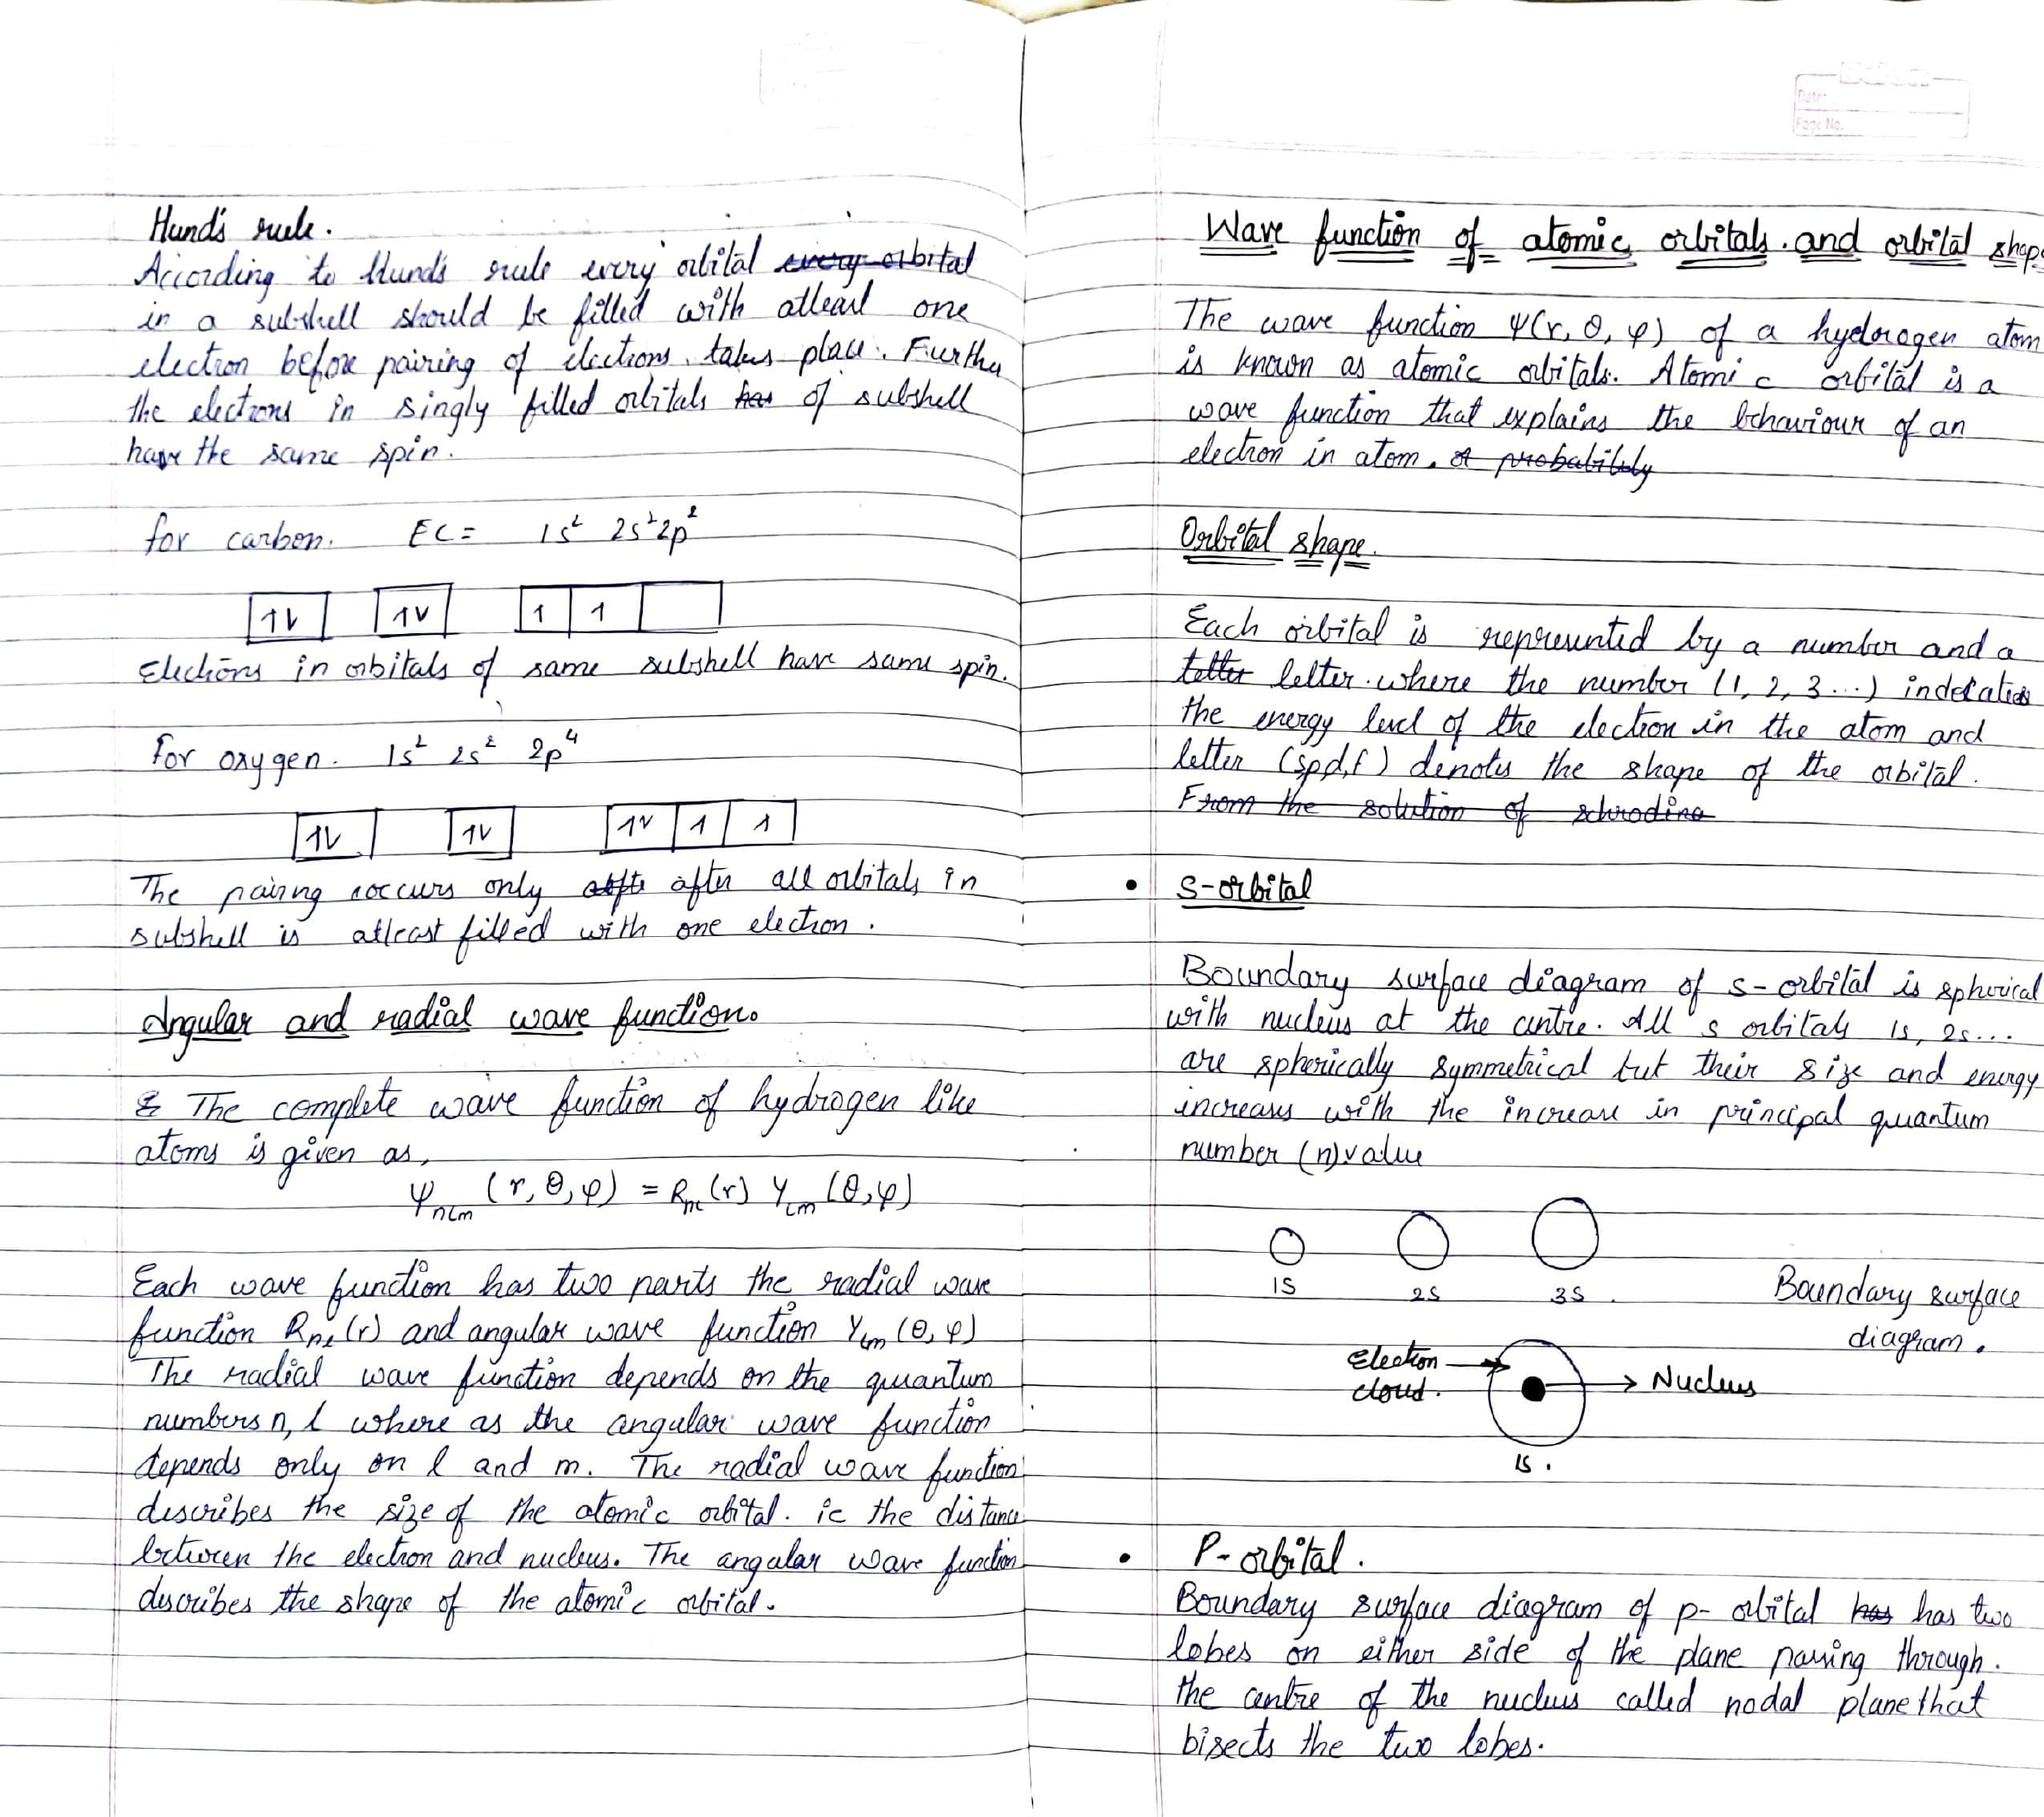 Hund's rule.
According to Hund's rule every orbital every orbital
in a subshell should be filled with atleast one
electron before pairing of electrons takes place. Further
the electrons in singly filled orbitals has of subshell
have the same spin.
for carbon. EC = 1s² 2s² 2p²
1V 1V 1 1
Electrons in orbitals of same subshell have same spin.
For oxygen. 1s² 2s² 2p⁴
1V 1V 1V 1 1
The pairing occurs only after all orbitals in
subshell is atleast filled with one electron.
Angular and radial wave function.
The complete wave function of hydrogen like
atoms is given as,
Ψnlm (r, θ, φ) = Rnl (r) Ylm (θ, φ)
Each wave function has two parts the radial wave
function Rnl (r) and angular wave function Ylm (θ, φ)
The radial wave function depends on the quantum
numbers n, l where as the angular wave function
depends only on l and m. The radial wave function
describes the size of the atomic orbital. ie the distance
between the electron and nucleus. The angular wave function
describes the shape of the atomic orbital.
Date:
Page No.
Wave function of atomic orbitals and orbital shape
The wave function Ψ(r, θ, φ) of a hydorogen atom
is known as atomic orbitals. Atomic orbital is a
wave function that explains the behaviour of an
electron in atom. probability
Orbital shape.
Each orbital is represented by a number and a
letter letter where the number (1, 2, 3...) indecates
the energy level of the electron in the atom and
letter (s,p,d,f) denotes the shape of the orbital.
From the solution of schrodine
• S-orbital
Boundary surface diagram of s-orbital is spherical
with nucleus at the centre. All s orbitals 1s, 2s...
are spherically symmetrical but their size and energy
increases with the increase in principal quantum
number (n) value
1S 2S 3S
Boundary surface
diagram.
Electron
cloud.
Nucleus
1S.
• P-orbital.
Boundary surface diagram of p-orbital has has two
lobes on either side of the plane passing through.
the centre of the nucleus called nodal plane that
bisects the two lobes.